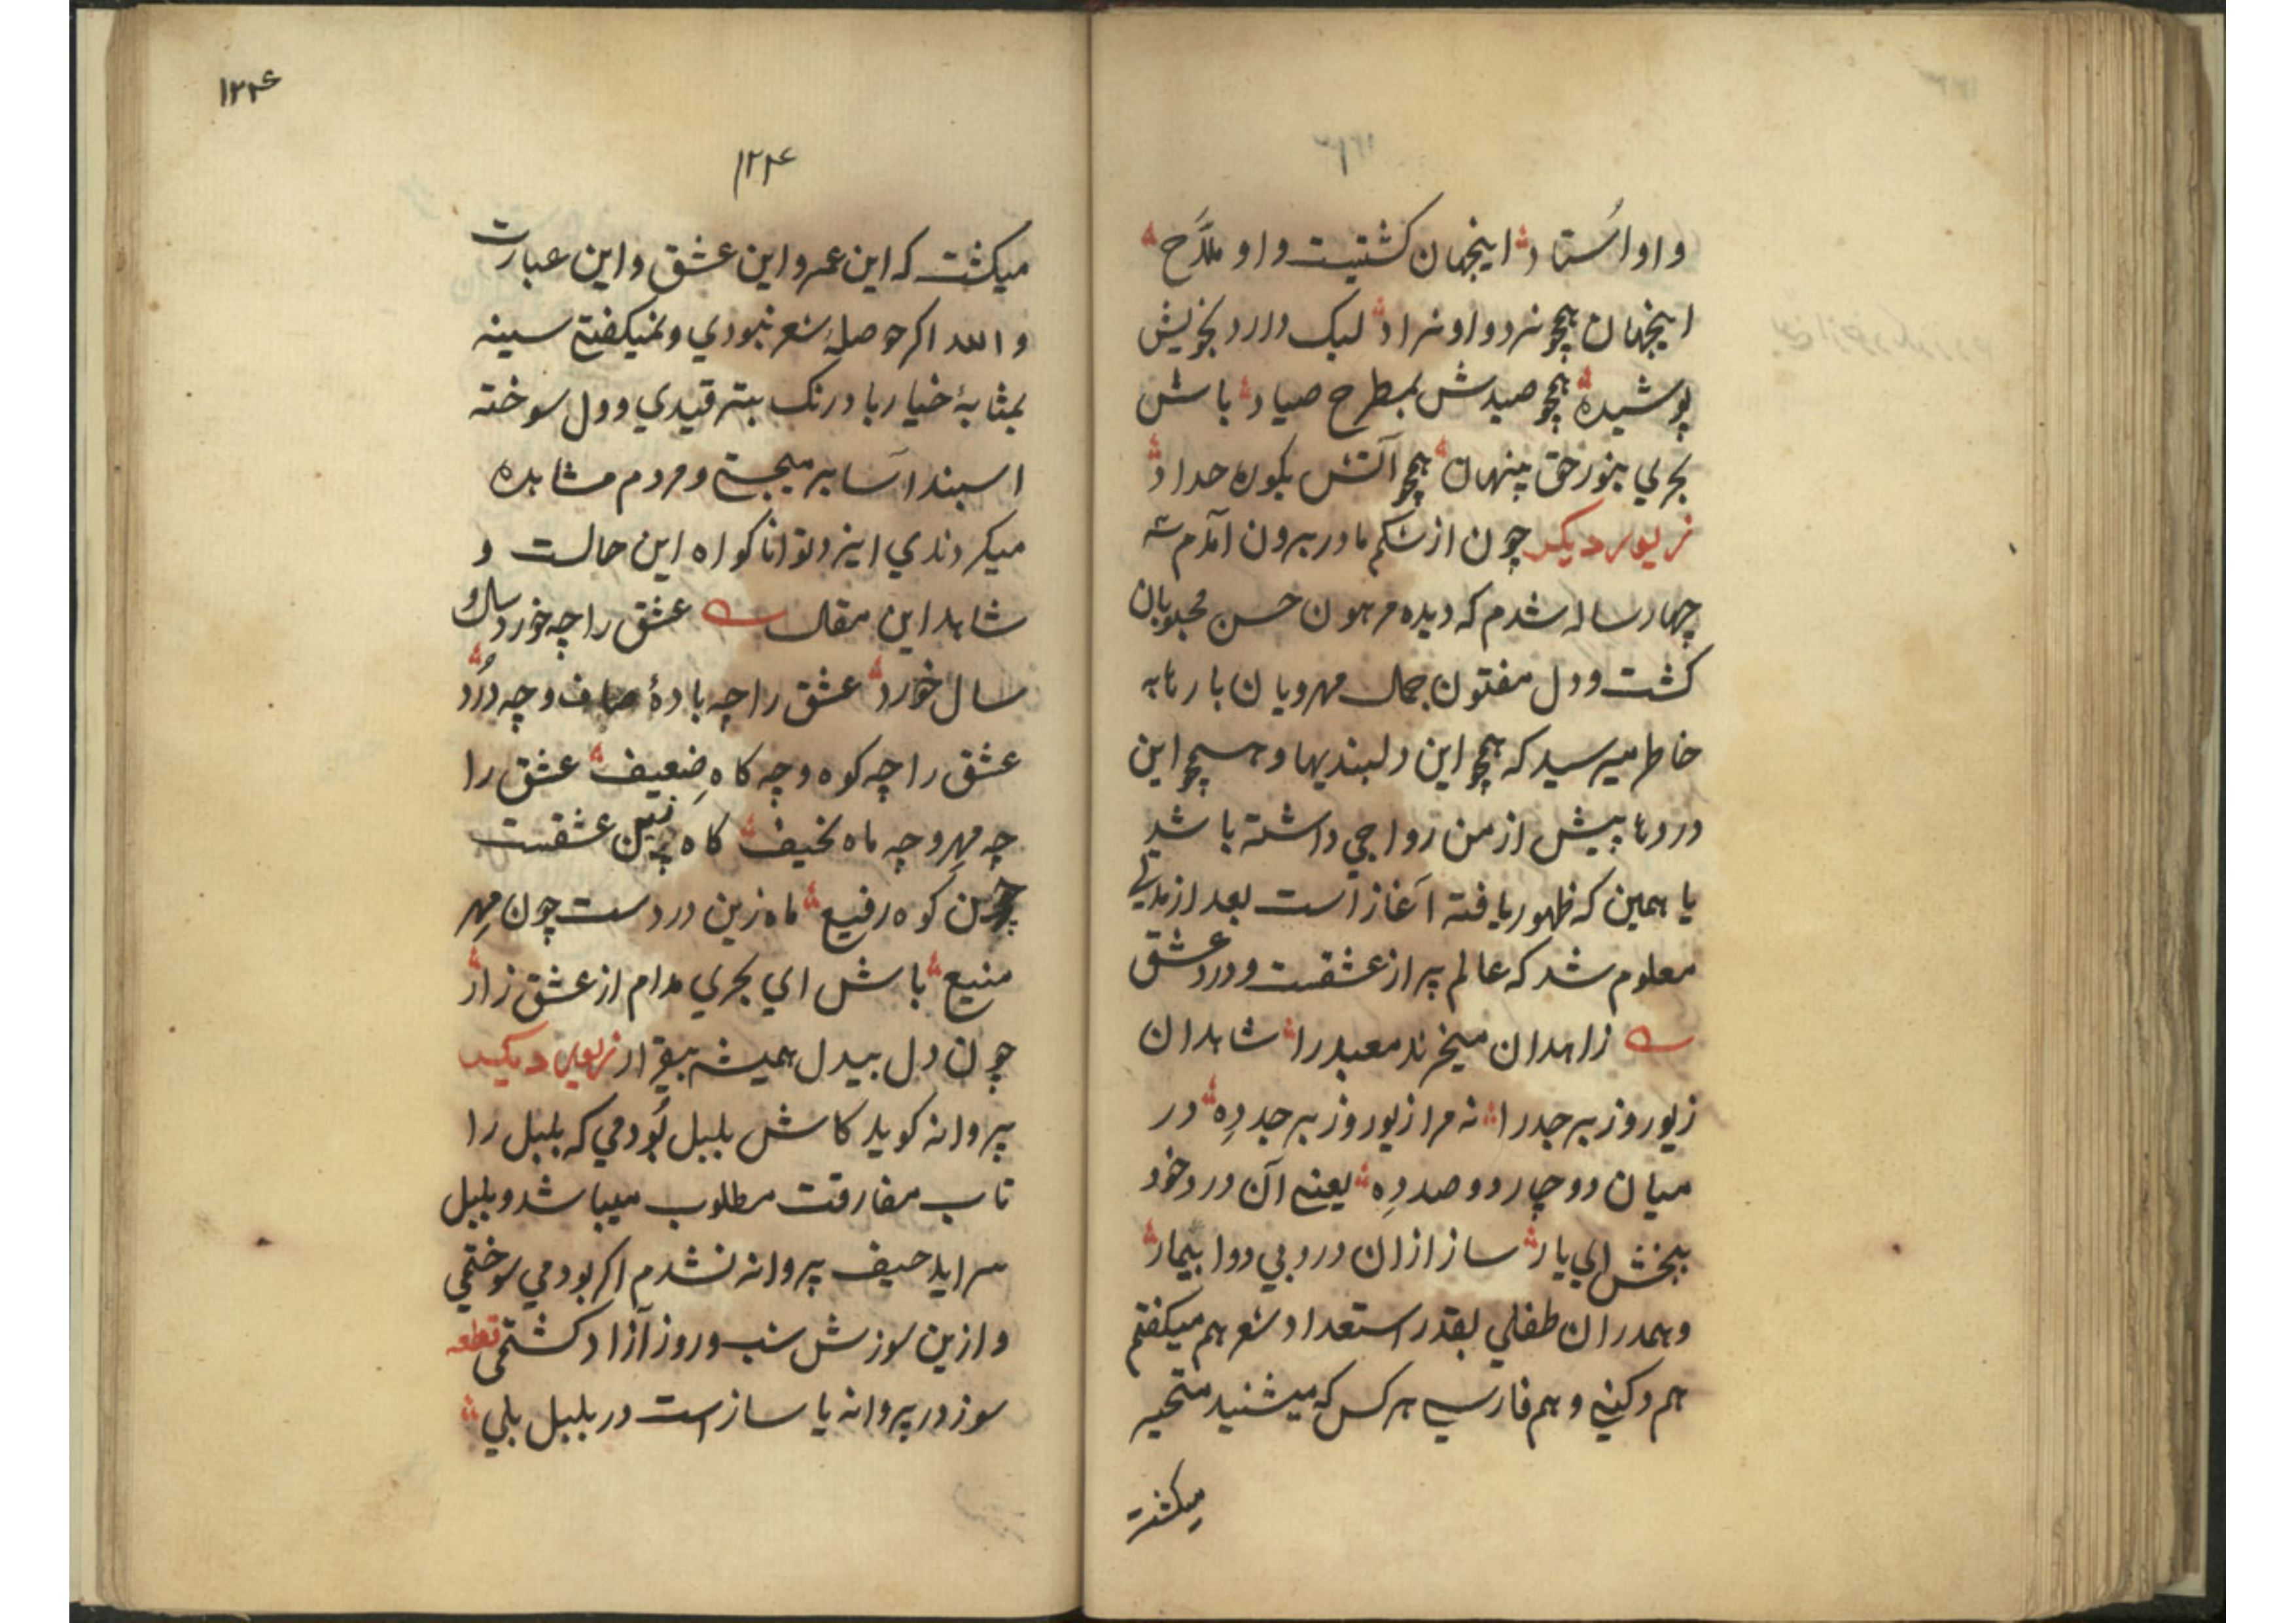 و او اُستاد اینجهان کشتیست و او ملّاح
اینجهان همچو نرد و او نراد لیک دارد بخویش
پوشیده همچو صیدش بمطرح صیاد باش
بحری بنور حق پنهان همچو آتش بکوره حداد
زیور دیکر چون از شکم مادر بیرون آمدم سه
چهار ساله شدم که دیده مرهون حسن محبوبان
کشت و دل مفتون جمال مهرویان بارها به
خاطر میرسید که همچو این دلبندیها و همچو این
دردها پیش از من رواجی داشته باشد
یا همین که ظهور یافته آغاز است بعد از مدتی
معلوم شد که عالم پر از عشقست و درد عشق
زاهدان میخرند معبد را شاهدان
زیور و زبرجد را نه مرا زیور و زبرجد دِه در
میان دو چار دو صد دِه یعنی آن درد خود
ببخش ای یار ساز ازان درد بی دوا بیمار
و همدران طفلی بقدر استعداد شعر هم میکفتم
هم دکنی و هم فارسی هر کس که میشنید متحیر
میکشت
۱۲۴
۱۲۴
میکشت که این عمر و این عشق و این عبارت
والله اکر حوصلهٔ شعر نبودی و نمیکفتم سینه
بمثابهٔ خیار بادرنک بترقیدی و دل سوخته
اسپند آسا برمیجستی و مردم مشاهده
میکردندی ایزد توانا کواه این حالت و
شاهد این مقال عشق را چه خورد سال و
سال خورد عشق را چه بادهٔ صاف و چه دُرد
عشق را چه کوه و چه کاه ضعیف عشق را
چه مهر و چه ماه نحیف کاه زین عشقست
چون کوه رفیع ماه زین دردست چون مهر
منیع باش ای بحری مدام از عشق زار
چون دل بیدل همیشه بیقرار زیور دیکر
پروانه کوید کاش بلبل بُودمی که بلبل را
تاب مفارقت مطلوب میباشد و بلبل
سراید حیف پروانه نشدم اکر بودمی سوختمی
و ازین سوزش شب و روز آزاد کشتمی قطعه
سوز در پروانه یا ساز است در بلبل بلی